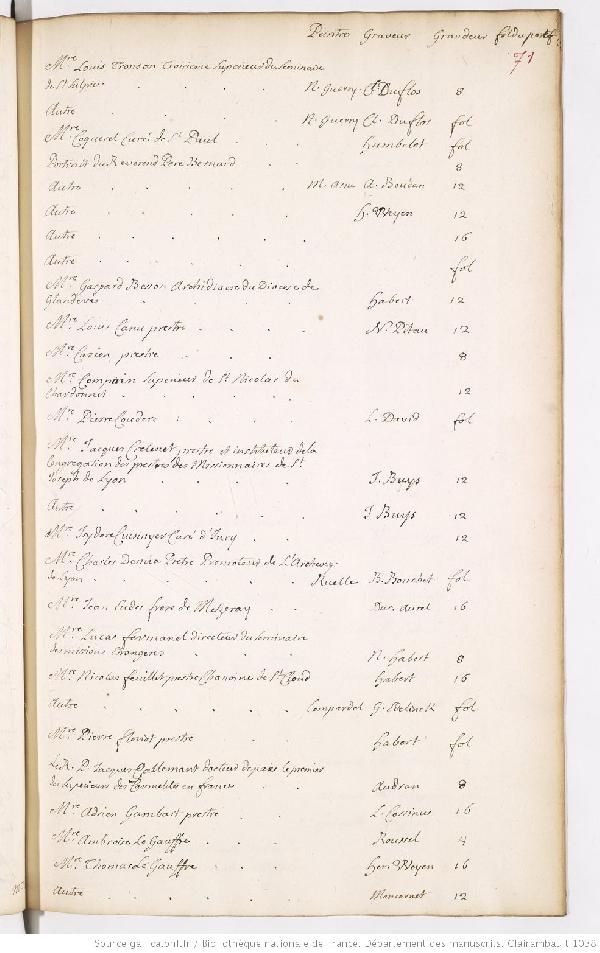 Peintre Graveur Grandeur fol du portf
71
Mre. Louis Tronson troisieme Superieur du Seminaire
de St. Sulpice . . . . N. Guerry Cl. Duflos 8
Autre . . . . . N. Guerry Cl. Duflos fol
Mre. Coquerel Curé de St. Paul . Humbelot fol
Portrait du Reverend Pere Bernard . . 8
Autre . . . . . A. Boudan 12
Autre . . . . . H. Weyen 12
Autre . . . . . 16
Autre . . . . . fol
Mre. Gaspard Archidiacre du Diocese de
Glandeves . . . . habert 12
Mre. Louis Canu prestre . . . N. Pitau 12
Mre. prestre . . . 8
Mre. Compain Superieur de St. Nicolas du
Chardonnet . . . . 12
Mre. Pierre Coudere . . . L. David fol
Mre. Jacques Cretenet prestre et instituteur de la
Congregation des prestres des Missionnaires de St.
Joseph de Lyon . . . J. Buys 12
Autre . . . . . J. Buys 12
Mre. Isydore Curé d'Ivry . . 12
Mre. Charles Demia Pretre Promoteur de L'Archevey.
de Lyon . . . . Ruelle B. Bonnbet fol
Mre. Jean Eudes frere de Mezeray . . Aurel 16
Mre. Lucas fermanel directeur du Seminaire
des missions Etrangeres . . . N. habert 8
Mre. Nicolas feuillet prestre Chanoine de St. Cloud habert 16
Autre . . . . . Compardel G. Edelinck fol
Mre. Pierre floriot prestre . . . habert fol
Le R. P. Jacques Gallemant docteur de paris le premier
des Superieurs des Carmelites en france . . Audran 8
Mre. Adrien Gambart prestre . . L. Cossinus 16
Mre. Ambroise Le Gauffre . . . Roussel 4
Mre. Thomas Le Gauffre . . . Her. Weyen 16
Autre . . . . . Moncornet 12
Source gallica.bnf.fr / Bibliothèque nationale de France. Département des manuscrits. Clairambault 1038